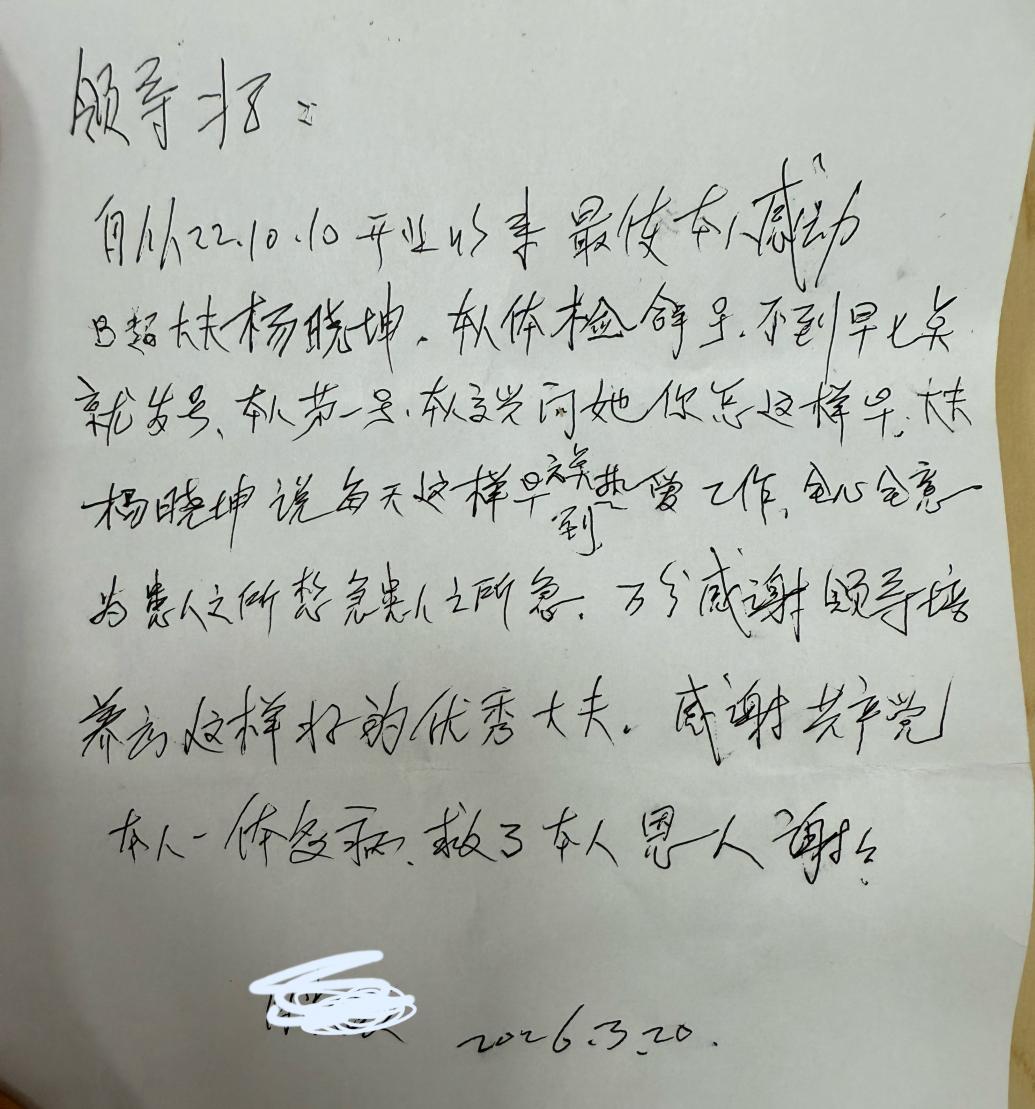 领导好：
自从22.10.10开业以来最使本人感动
B超大夫杨晓坤。本人体检拿号。不到早七点
就发号、本人第一号、本人文党问她你怎这样早。大夫
杨晓坤说每天这样早到热爱工作、全心全意
为患人之所想急患人之所急。万分感谢领导培
养出这样好的优秀大夫。感谢共产党
本人一体多病、救了本人恩人谢谢
2026.3.20.